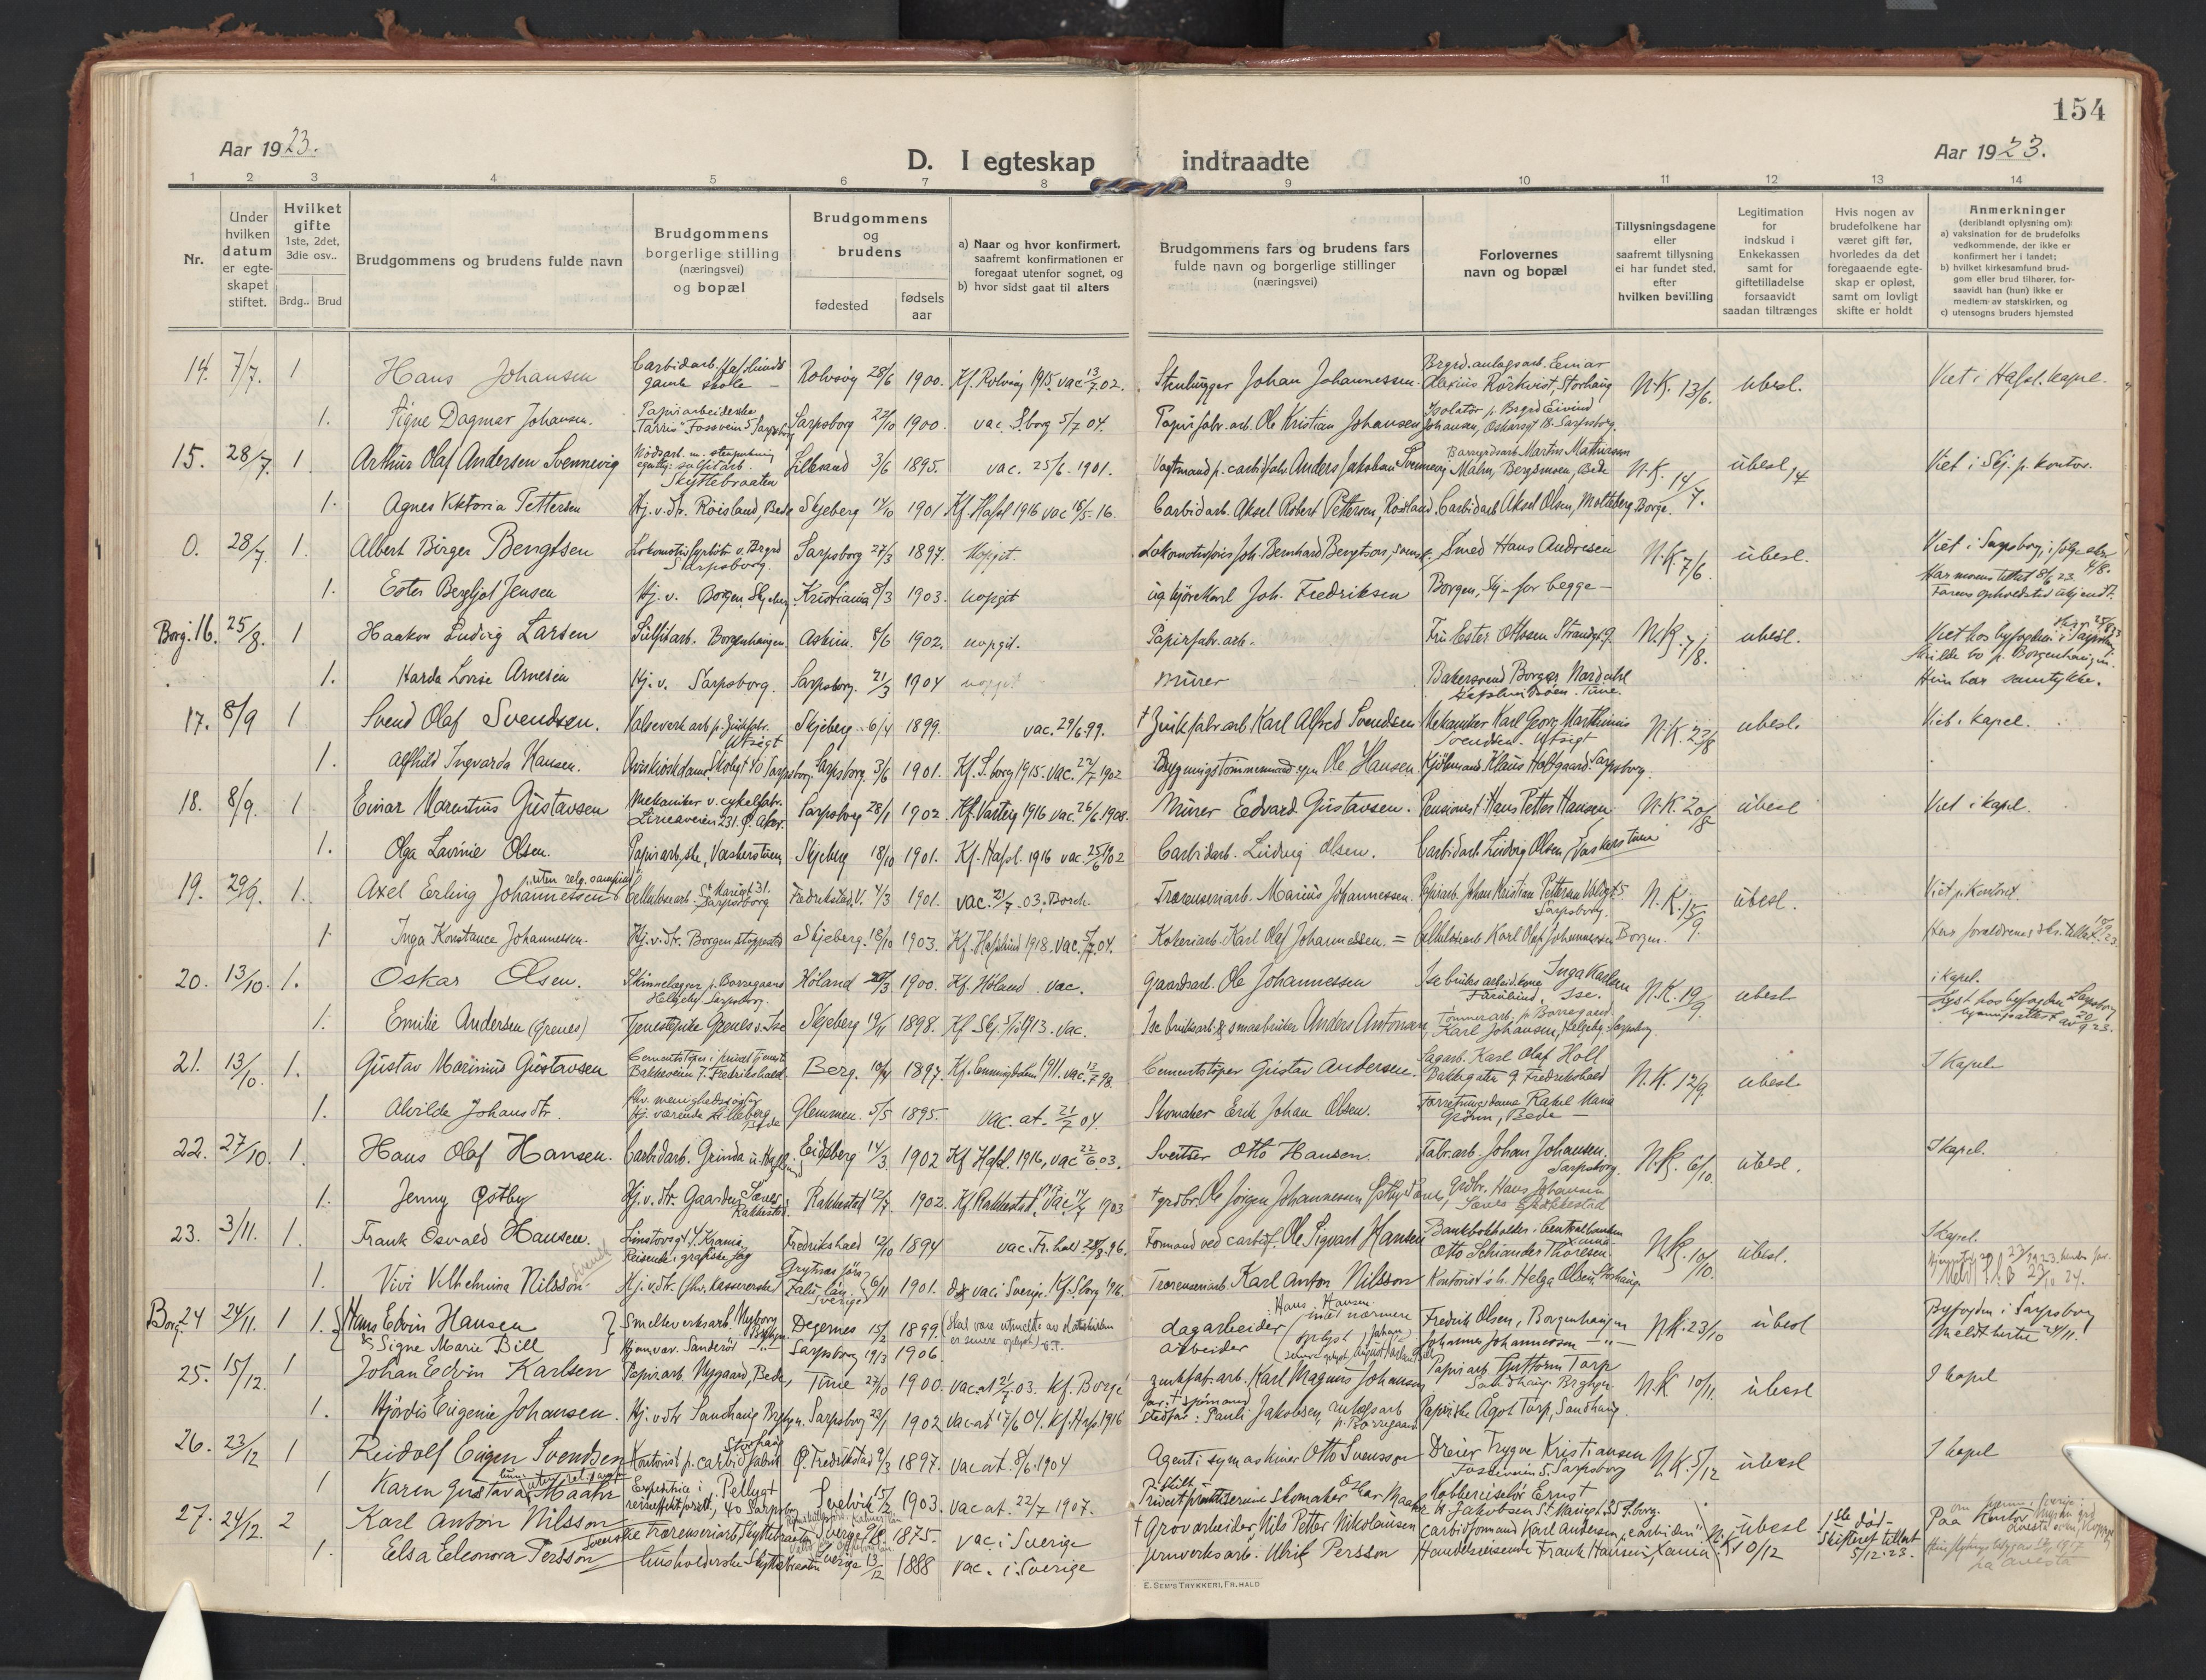 154
Aar 1923.
D. I egteskap indtraadte
Aar 1923.
1 2 3 4 5 6 7 8 9 10 11 12 13 14
Nr.
Under hvilken datum er egteskapet stiftet.
Hvilket gifte 1ste, 2det, 3die osv..
Brdg.. Brud
Brudgommens og brudens fulde navn
Brudgommens borgerlige stilling (næringsvei) og bopæl
Brudgommens og brudens
fødested
fødsels aar
a) Naar og hvor konfirmert, saafremt konfirmationen er foregaat utenfor sognet, og
b) hvor sidst gaat til alters
Brudgommens fars og brudens fars fulde navn og borgerlige stillinger (næringsvei)
Forlovernes navn og bopæl
Tillysningsdagene eller saafremt tillysning ei har fundet sted, efter hvilken bevilling
Legitimation for indskud i Enkekassen samt for giftetilladelse forsaavidt saadan tiltrænges
Hvis nogen av brudefolkene har været gift før, hvorledes da det foregaaende egteskap er opløst, samt om lovligt skifte er holdt
Anmerkninger (deriblandt oplysning om):
a) vaksination for de brudefolks vedkommende, der ikke er konfirmert her i landet;
b) hvilket kirkesamfund brudgom eller brud tilhører, forsaavidt han (hun) ikke er medlem av statskirken, og
c) utensogns bruders hjemsted
14. 7/7. 1 Hans Johansen Carbidarb. Hafslunds gamle skole Rolvsøy 28/6 1900. Kf. Rolvsøy 1915. vac 13/7 02. Stenhugger Johan Johannessen. Brgrd. anlagsarb. Einar Alexius Rörkvist, Storhaug N.K. 13/6. ubesl. Viet i Hafsl. kapel.
1. Signe Dagmar Johansen. Papirarbeiderske "Tarris" Fossvein 5 Sarpsborg Sarpsborg 22/10 1900. vac. S.borg 5/7 04. Papirfabr. arb. Ole Kristian Johansen Isolatør p. Brgrd Eivind Johansen, Oskarsgt 18. Sarpsborg.
15. 28/7. 1 Arthur Olaf Andersen Svennevig Nødsarb. m. stenpukning Skyttebraaten Lillesand 3/6 1895. vac. 25/6. 1901. Vagtmand p. carbidfabr. Anders Jakobsen Svennevig Martin Mathiassen Malm, Bergsmoen, Bede N.K. 14/7. ubesl. Viet i Skj. p. kontor.
1. Agnes Viktoria Pettersen Hj. v. dtr. Röisland, Bede Skjeberg 14/10 1901 Kf. Hafsl 1916 vac 18/5-16. Carbidarb. Aksel Robert Pettersen, Röisland. Carbidarb Aksel Olsen, Molteberg Borge.
0. 28/7 1. Albert Birger Bengtsen Lokomotivfyrbøter v. Brgrd Sarpsborg. Sarpsborg 27/3 1897. Uopgit. Joh. Bernhard Bengtson, svensk. Smed Hans Andresen N.K. 7/6. ubesl. Viet i Sarpsborg, ifølge skr. 4/8.
1. Ester Bergljot Jensen Hj. v. Borgen, Skjeberg Kristiania 8/3 1903. uopgit Karl Joh. Fredriksen Borgen, Skj - for begge - Har morens tillat 8/6 23. Farens opholdssted ukjendt.
Borg. 16. 25/8. 1 Haakon Ludvig Larsen Sulfitarb. Borgenhaugen. Askim. 8/6 1902. uopgit. Papirfabr. arb. Fru Ester Ottesen Strandgt 9. N.K. 7/8. ubesl. Viet hos byfogden i Sarpsborg. Skulde bo p. Borgenhaugen.
1. Harda Lovise Arnesen Hj. v. Sarpsborg. Sarpsborg. 21/3 1904 uopgit Murer Bakersvend Borger Nordahl Tune. Hun har samtykke.
17. 8/9 1 Svend Olaf Svendsen. Valseverk arb p. Zinkfabr. Utsigt Skjeberg 6/4 1899. vac. 29/6. 99. † Zinkfabr arb Karl Alfred Svendsen Mekaniker Karl Georg Marthinius Svendsen. Utsigt N.K. 22/8 ubesl. Viet i kapel.
1. Alfhild Ingvarda Hansen. Aviskioskdame, Skolegt 40 Sarpsborg. Sarpsborg. 3/6 1901. Kf. S.borg 1915. vac. 22/7 1902 Bygningstømmermand Ole Hansen. Kjøbmand Klaus Holtgaard. Sarpsborg.
18. 8/9. 1 Einar Marentius Gustavsen Mekaniker v. cykelfabr. Sarpsborg 28/1 1902 Kf. Varteig 1916 vac. 26/6. 1908. Murer Edvard Gustavsen. Pensionist Hans Petter Hansen N.K. 20/8 ubesl Viet i kapel.
1. Olga Lavinie Olsen. Papirarb.ske, Vaskerstuen Skjeberg 18/10 1901. Kf. Hafsl. 1916 vac. 25/6 1902 Carbidarb. Ludvig Olsen. Carbidarb. Ludvig Olsen, Vaskerstuen
19. 29/9. 1. Axel Erling Johannessen uten relg. samfund Cellulosearb. St Mariegt 31. Sarpsborg Fredrikstad V. 4/3 1901. vac. 21/7. 03. Borch. Træsenseriarb. Marius Johannessen. Papirarb. Johan Kristian Pettersen Voldgt 5 Sarpsborg. N.K. 15/9. ubesl. Viet p. Kontoret.
1. Inga Konstance Johannessen. Hj. v. dtr. Borgen stoppested Skjeberg. 18/10 1903. Kf. Hafslund 1918. vac. 5/7. 04. Kokeriarb. Karl Olaf Johannessen. = Cellulosearb Karl Olaf Johannessen Borgen. Har forældrenes skr. tillat. 10/9 23.
20. 13/10. 1. Oskar Olsen. Skinnelægger p. Borregaard Helgeby Sarpsborg. Höland 20/3 1900. Kf. Höland. vac. Gaardsarb. Ole Johannessen Isebruks arbeid. kone Inga Karlsen Ise. N.K. 19/9. ubesl. i kapel. Lyst hos byfogden Sarpsborg 20/9 23.
1. Emilie Andersen (Grenes) Tjenestepike Grenes v. Ise Skjeberg 19/11 1898. Kf. Skj. 1913. Vac. Ise bruksarb. & smaabruker Anders Antonsen, Tömmerarb. p. Borregaard. Karl Johansen, Helgeby. Sarpsborg.
21. 13/10. 1. Gustav Marinius Gustavsen Cementstöper i privat tjeneste Bakkeveien 7. Fredrikshald Berg. 10/4 1897. Kf. Enningdalen 1911. vac. 12/7 98. Cementstöper Gustav Andersen. Sagarb. Karl Olaf Holl Bakkegaten 9 Fredrikshald N.K. 12/9. ubesl. I Kapel.
1. Alvilde Johansdtr. fhv. menighedssøster Hj. værende Lilleberg Bede Glemmen. 5/5 1895. Vac. at. 21/7 04. Skomaker Erik Johan Olsen. Forretningsdame Rakel Maria Grönn, Bede
22. 27/10. 1. Hans Olaf Hansen. Carbidarb. Grinda u. Hafslund Eidsberg 14/3 1902 Kf Hafsl. 1916, vac 22/6 03. Sveitser Otto Hansen. Fabr. arb. Johan Johansen. Sarpsborg. N.K. 6/10. ubesl. I Kapel.
1. Jenny Østby Hj. v. dtr. Gaarden Rakkestad. Rakkestad 12/7. 1902. Kf. Rakkestad, 1917 vac. 14/7 1903 † grdbr. Ole Jörgen Johannessen Østby Grdbr. Hans Johansen Rakkestad
23. 3/11. 1. Frank Osvald Hansen. Linstowsgt 4. Krania Reisende i grafiske fag Fredrikshald 12/10 1894 vac. Fr. hald 28/8. 96. Formand ved carbidf. Ole Sigvart Hansen Bankbokholder i Centralbanken Otto Schiander Thoresen. N.K. 10/10. ubesl. I Kapel.
1. Vivi Vilhelmina Nilsson. Svensk Hj. v. dtr. (fhv. kassererske) Falu län Sverige 6/11 1901. vac i Sverige. Kf. S.borg 1916. Træsenseriarb. Karl Anton Nilsson Kontorist'sh. Helga Olsen Storhaug
Borg. 24 24/11. 1 1. Hans Edvin Hansen Smelteverksarb. Nyborg Degernes 15/2 1899. (Skal være utmeldt av statskirken er senere oplyst) dagarbeider Hans Hansen. intet nærmere oplyst Fredrik Olsen, Borgenhaugen N.K. 23/10 ubesl Byfogden i Sarpsborg
& Signe Marie Bill Hjemvær. Sanderöd Sarpsborg 19/3 1906. arbeider Johannes Johannessen Meldt hertil 24/11.
25. 15/12. 1 Johan Edvin Karlsen Papirarb. Nygaard, Bede, Tune 27/10 1900. vac. at 21/7. 03. Kf. Borge Zinkfabr. arb. Karl Magnus Johansen Papirarb. Guttorm Tarp Sandhaug. Brghgn. N.K 10/11. ubesl I kapel
1. Hjördis Eugenie Johansen. Hj. v dtr Sandhaug Brghgn. Sarpsborg 23/1 1902 vac. at 17/6 04. Kf. Hafsl. 1916 Far: † sjömand. Stedfar: Pauli Jakobsen, anlægsarb p. Borregaard Papirske Ågot Tarp, Sandhaug.
26. 23/12 1 Reidolf Eugen Svendsen Kontorist p. carbidfabrik Storhaug Ø. Fredrikstad 9/3 1897. vac at. 8/6. 1904 Agent i symaskiner Otto Svensson Dreier Trygve Kristiansen Fossveien 5. Sarpsborg N.K. 5/12 ubesl I kapel
1 Karen Gustava Maahr Expeditrice i reiseeffektforret., Pellygt 40 Sarpsborg Svelvik 15/2 1903. vac at. 22/7 1907. Skomaker Oskar Maahr Kobberciselör Ernst Jakobsen St Mariegt 35 S.borg.
27. 24/12. 2 Karl Anton Nilsson Svenske Træsenseriarb, Skyttebraaten Sverge 9/8. 1875. vac. i Sverige † Grovarbeider, Nils Petter Nikolausen Carbidformand Karl Andersen, "carbiden" N.K. 10/12 ubesl 1ste död - Skifteret tillat 5/12. 23. Paa Kontor
1. Elsa Eleonora Persson husholderske Skyttebraaten Sverige 13/12 1888 vac. i Sverige Jernverksarb. Ulrik Persson Handelsreisende Frank Hansen, Xania
E. SEM'S TRYKKERI, FR.HALD